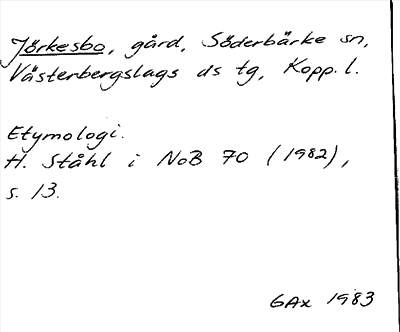 Jörkesbo, gård, Söderbärke sn,
Västerbergslags ds tg, Kopp. l.
Etymologi.
H. Ståhl i NoB 70 (1982),
s. 13.
GAx 1983